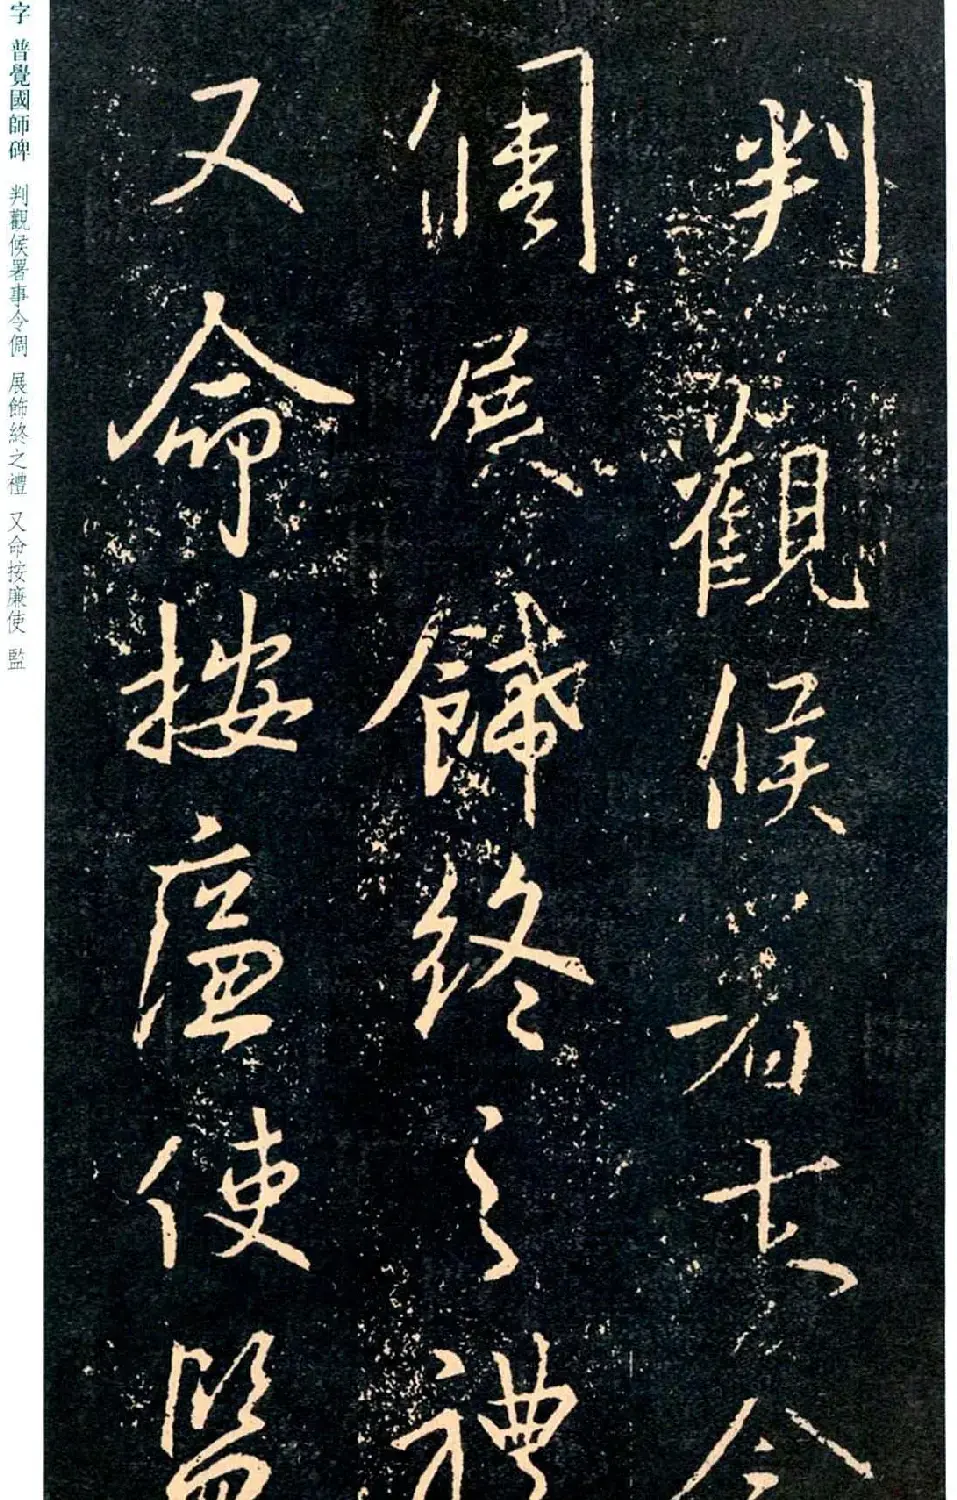 判觀候署事令
倜展飾終之禮
又命按廉使監
字 普覺國師碑 判觀候署事令倜 展飾終之禮 又命按廉使 監